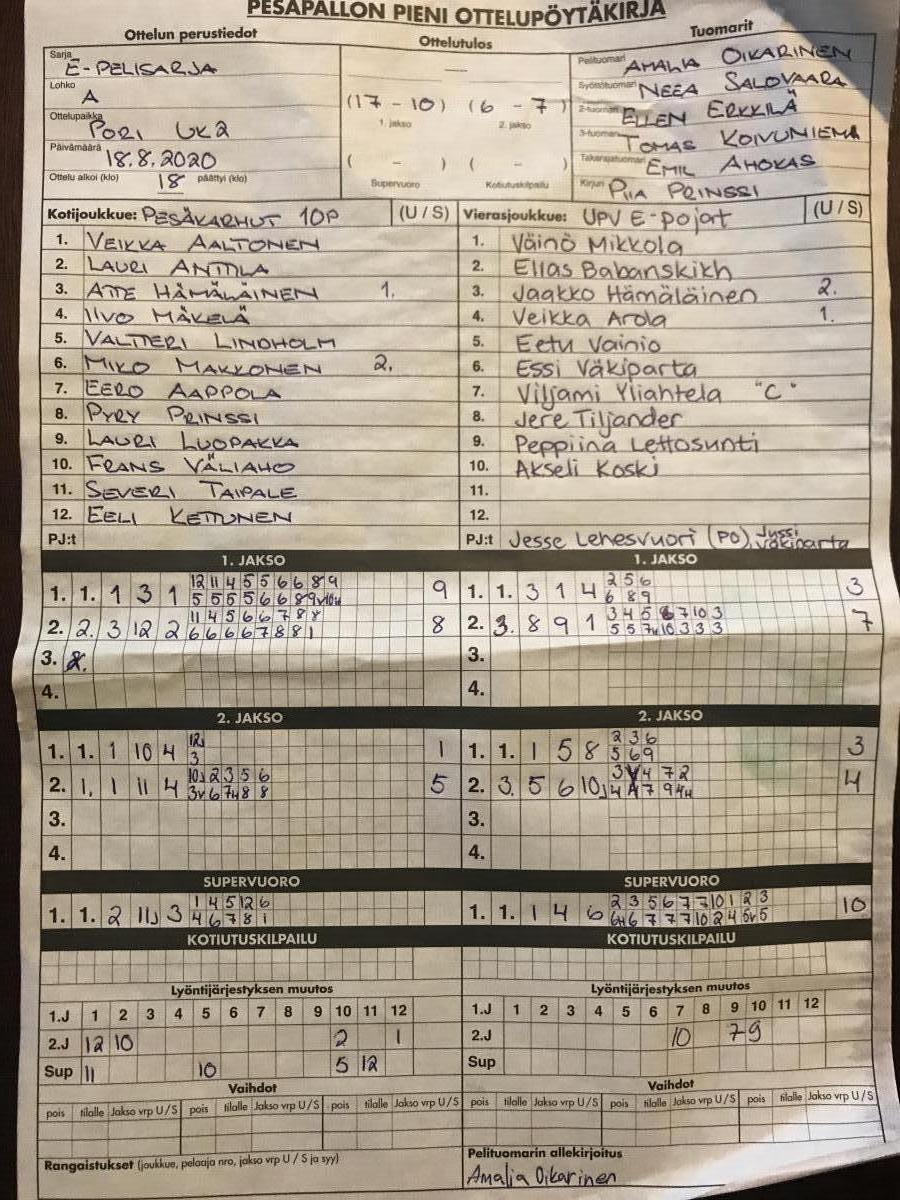 PESÄPALLON PIENI OTTELUPÖYTÄKIRJA
Ottelun perustiedot
Ottelutulos
Tuomarit
Sarja E-PELISARJA
Lohko A
Ottelupaikka PORI UK2
Päivämäärä 18.8.2020
Ottelu alkoi (klo) 18 päättyi (klo)
—
(17 - 10) (6 - 7)
1. jakso 2. jakso
( - ) ( - )
Supervuoro Kotiutuskilpailu
Pelituomari AMALIA OIKARINEN
Syöttötuomari NEEA SALOVAARA
2-tuomari ELLEN ERKKILÄ
3-tuomari TOMAS KOIVUNIEMI
Takarajatuomari EMIL AHOKAS
Kirjuri PIIA PRINSSI
Kotijoukkue: PESÄKARHUT 10P (U / S)
1. VEIKKA AALTONEN
2. LAURI ANTTILA
3. ATTE HÄMÄLÄINEN 1.
4. IIVO MÄKELÄ
5. VALTTERI LINDHOLM
6. MIKO MAKKONEN 2.
7. EERO AAPPOLA
8. PYRY PRINSSI
9. LAURI LUOPAKKA
10. FRANS VÄLIAHO
11. SEVERI TAIPALE
12. EELI KETTUNEN
PJ:t
Vierasjoukkue: UPV E-pojat (U / S)
1. Väinö Mikkola
2. Elias Babanskikh
3. Jaakko Hämäläinen 2.
4. Veikka Arola 1.
5. Eetu Vainio
6. Essi Väkiparta
7. Viljami Yliahtela "C"
8. Jere Tiljander
9. Peppiina Lettosunti
10. Akseli Koski
11.
12.
PJ:t Jesse Lehesvuori (PO), Jyssi Väkiparta
1. JAKSO
1. 1. 1 3 1 12 11 4 5 5 6 6 8 9 9
5 5 5 5 6 6 8 9v 10u
2. 2. 3 12 2 11 4 5 6 6 7 8 8 8
6 6 6 6 7 8 8 1
3. 2.
4.
1. JAKSO
1. 1. 3 1 4 2 5 6 3
6 8 9
2. 3. 8 9 1 3 4 5 6 7 10 3 7
5 5 7u 10 3 3 3
3.
4.
2. JAKSO
1. 1. 1 10 4 12J 1
3
2. 1. 1 11 4 10J 2 3 5 6 5
3v 6 7u 8 8
3.
4.
2. JAKSO
1. 1. 1 5 8 2 3 6 3
5 6 9
2. 3. 5 6 10J 3 4 7 2 4
4 7 9 4u
3.
4.
SUPERVUORO
1. 1. 2 11J 3 1 4 5 12 6
4 6 7 8 1
SUPERVUORO
1. 1. 1 4 6 2 3 5 6 7 7 10 1 2 3 10
6u 6 7 7 7 10 2 4 5v 5
KOTIUTUSKILPAILU
KOTIUTUSKILPAILU
Lyöntijärjestyksen muutos
1.J 1 2 3 4 5 6 7 8 9 10 11 12
2.J 12 10 2 1
Sup 11 10 5 12
Lyöntijärjestyksen muutos
1.J 1 2 3 4 5 6 7 8 9 10 11 12
2.J 10 7 9
Sup
Vaihdot
pois tilalle Jakso vrp U/S pois tilalle Jakso vrp U/S pois tilalle Jakso vrp U/S
Vaihdot
pois tilalle Jakso vrp U/S pois tilalle Jakso vrp U/S pois tilalle Jakso vrp U/S
Rangaistukset (joukkue, pelaaja nro, jakso vrp U / S ja syy)
Pelituomarin allekirjoitus
Amalia Oikarinen